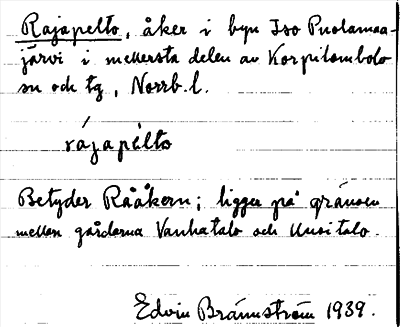 Rajapelto, åker i byn Iso Puolamaa-
järvi i mellersta delen av Korpilombolo
sn och tg, Norrb. l.
rájapélto
Betyder Rååkern; ligger på gränsen
mellan gårdarna Vanhatalo och Uusitalo.
Edvin Brännström 1939.